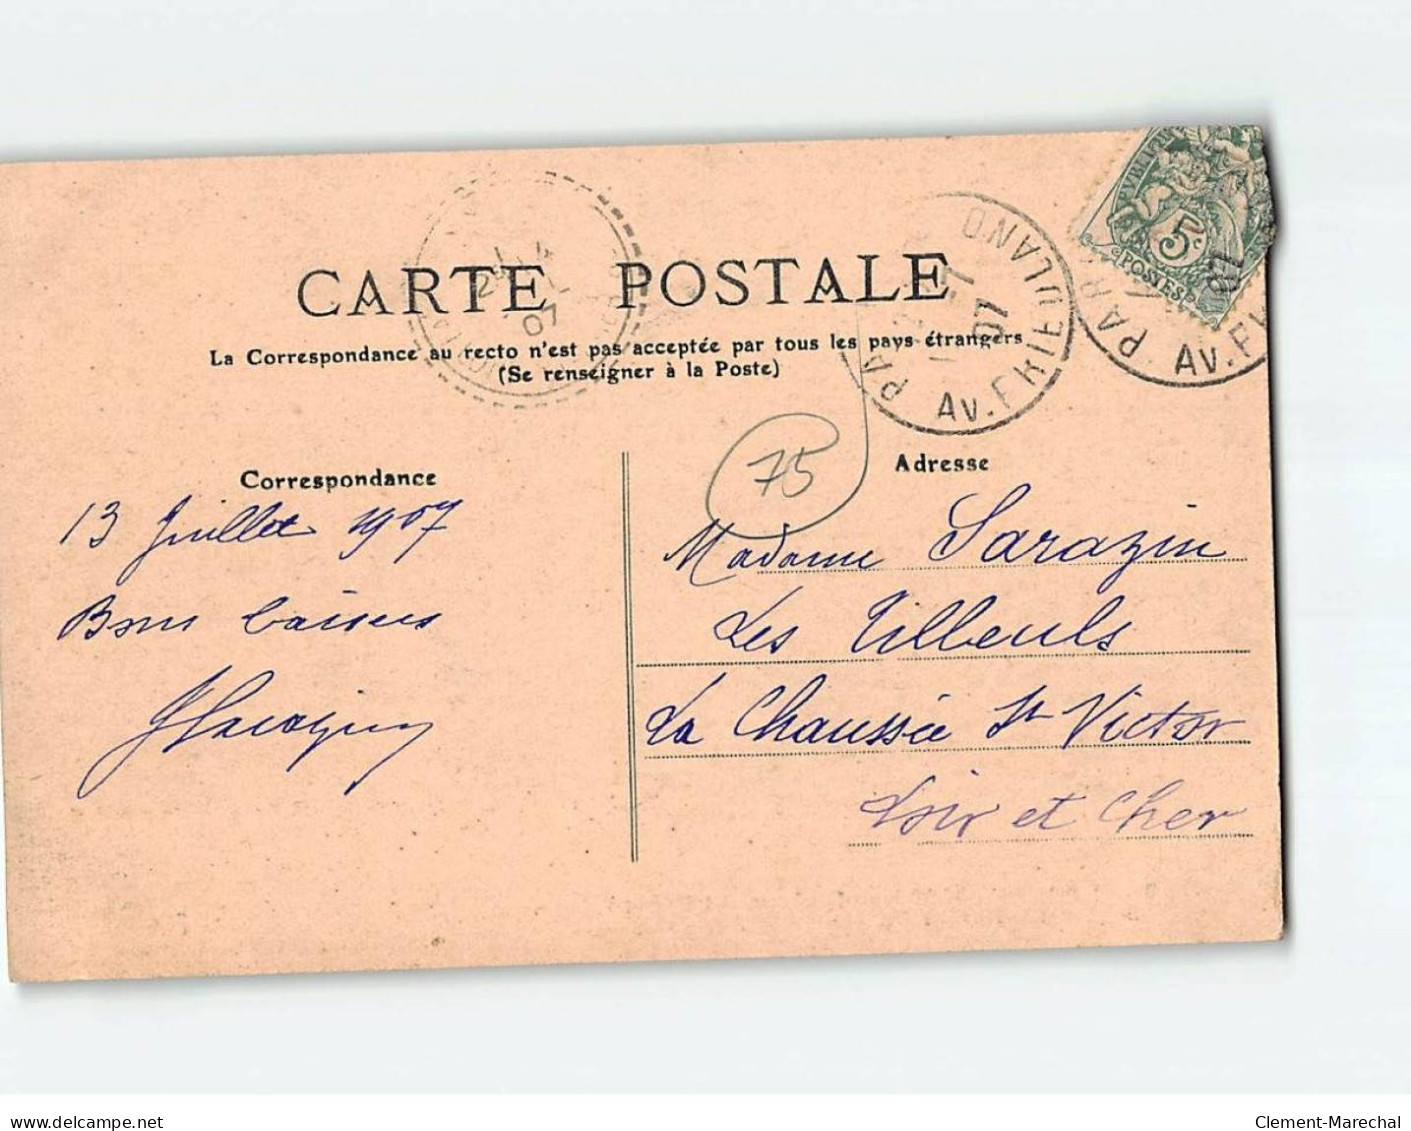 CARTE POSTALE
La Correspondance au recto n'est pas acceptée par tous les pays étrangers
(Se renseigner à la Poste)
PARIS
AV. FRIEDLAND
07
PARIS
AV. F
07
5c
POSTES
07
75
Correspondance
13 Juillet 1907
Bons baisers
Adresse
Madame Sarazin
Les Tilleuls
La Chaussée St Victor
Loir et Cher
delcampe.net
Clement-Marechal